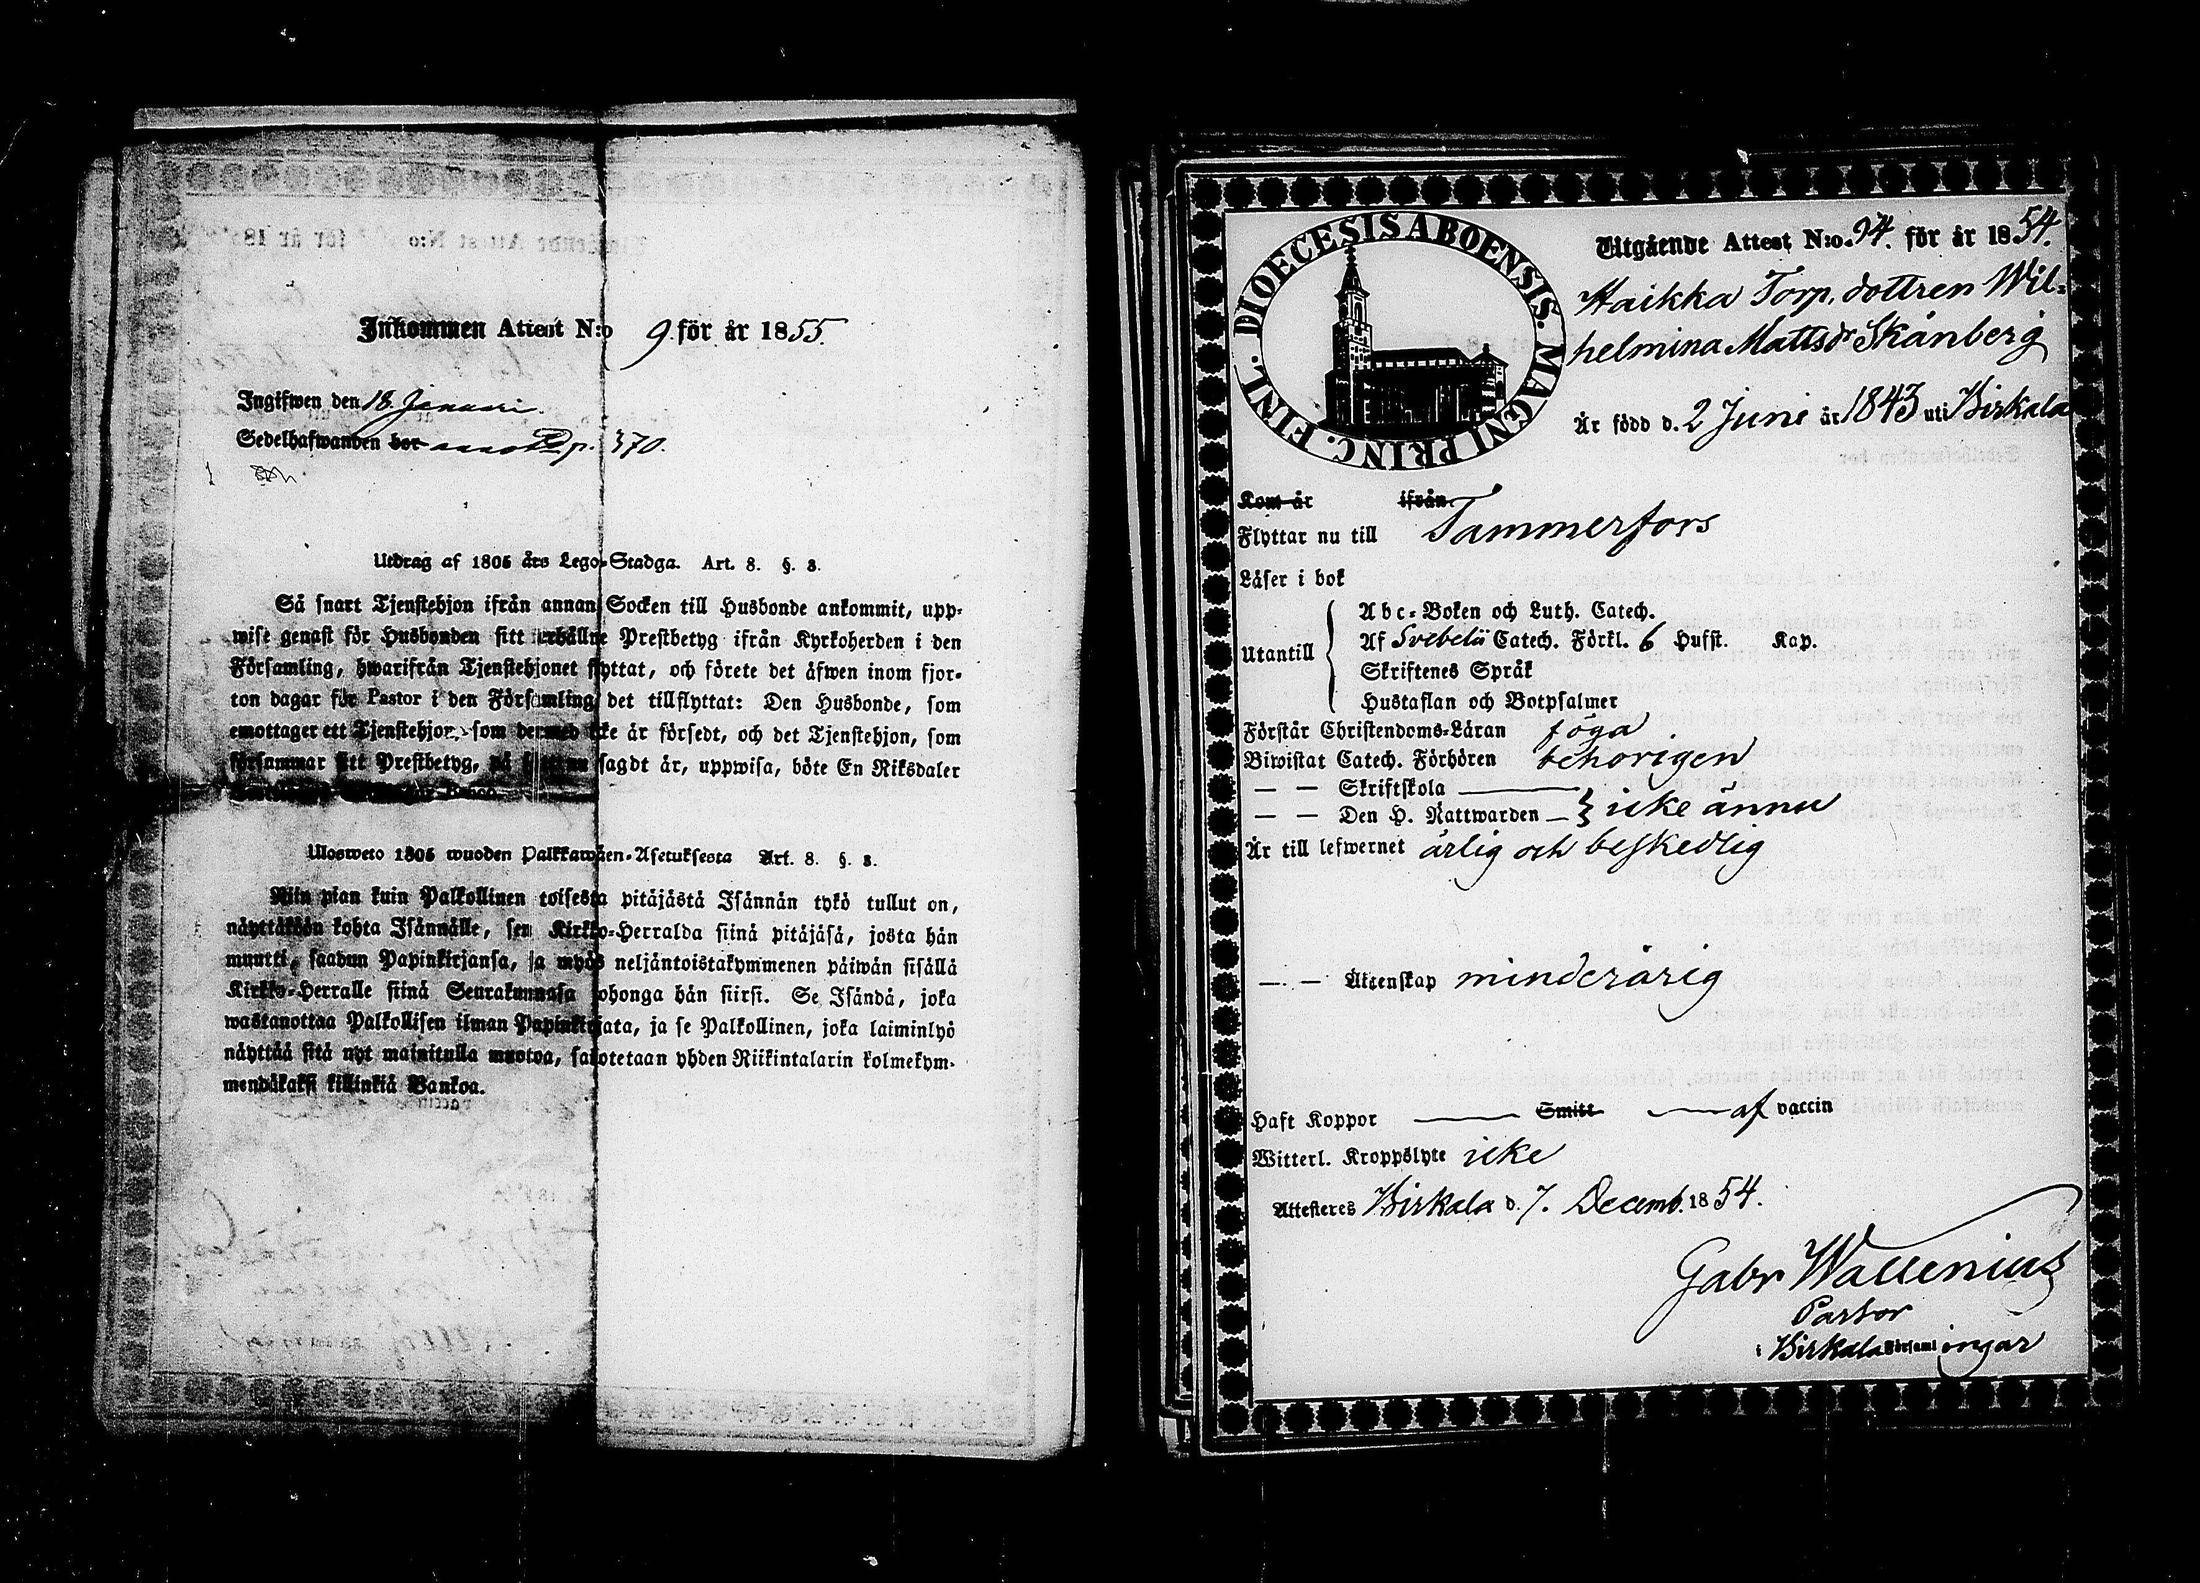 Inkommen Attest N:o 9. för år 1855.
Ingifwen den 18. Januari.
Sedelhafwanden bor p. 370.
Utdrag af 1805 års Lego-Stadga. Art. 8. §. 3.
Så snart Tjenstehjon ifrån annan Socken till Husbonde ankommit, upp-
wise genast för Husbonden sitt erhållne Prestbetyg ifrån Kyrkoherden i den
Församling, hwarifrån Tjenstehjonet flyttat, och förete det äfwen inom fjor-
ton dagar för Pastor i den Församling det tillflyttat: Den Husbonde, som
emottager ett Tjenstehjon, som dermed icke är försedt, och det Tjenstehjon, som
försummar sitt Prestbetyg, på sätt nu sagdt är, uppwisa, böte En Riksdaler
Ulosweto 1805 wuoden Palkkawäen-Asetuksesta Art. 8. §. 3.
Niin pian kuin Palkollinen toisesta pitäjästä Isännän tykö tullut on,
näyttäköön kohta Isännälle, sen Kirkko-Herralda siinä pitäjäsä, josta hän
muutti, saadun Papinkirjansa, ja myös neljäntoistakymmenen päiwän sisällä
Kirkko-Herralle siinä Seurakunnasa johonga hän siirsi. Se Isändä, joka
wastanottaa Palkollisen ilman Papinkirjata, ja se Palkollinen, joka laiminlyö
näyttää sitä nyt mainitulla muotoa, sakotetaan yhden Riikintalarin kolmekym-
mendäkaksi killinkiä Bankoa.
DIOECESIS ABOENSIS. MAGNI PRINC. FINL.
Utgående Attest N:o 94. för år 1854.
Haikka Torp. dottren Wil-
helmina Mattsdr Skånberg
Är född d. 2 Juni år 1843 uti Birkala
Kom år ifrån
Flyttar nu till Tammerfors
Läser i bok
Utantill
Abc-Boken och Luth. Catech.
Af Svebelii Catech. Förkl. 6 Hufst. Kap.
Skriftenes Språk
Hustaflan och Botpsalmer
Förstår Christendoms-Läran föga
Biwistat Catech. Förhören behörigen
— — Skriftskola
— — Den H. Nattwarden icke ännu
Är till lefwernet ärlig och beskedlig
— — Äktenskap minderårig
Haft Koppor — Smitt — af vaccin
Witterl. Kroppslyte icke
Attesteres Birkala d. 7. Decemb. 1854.
Gabr Wallenius
Pastor
i Birkala Församlingar